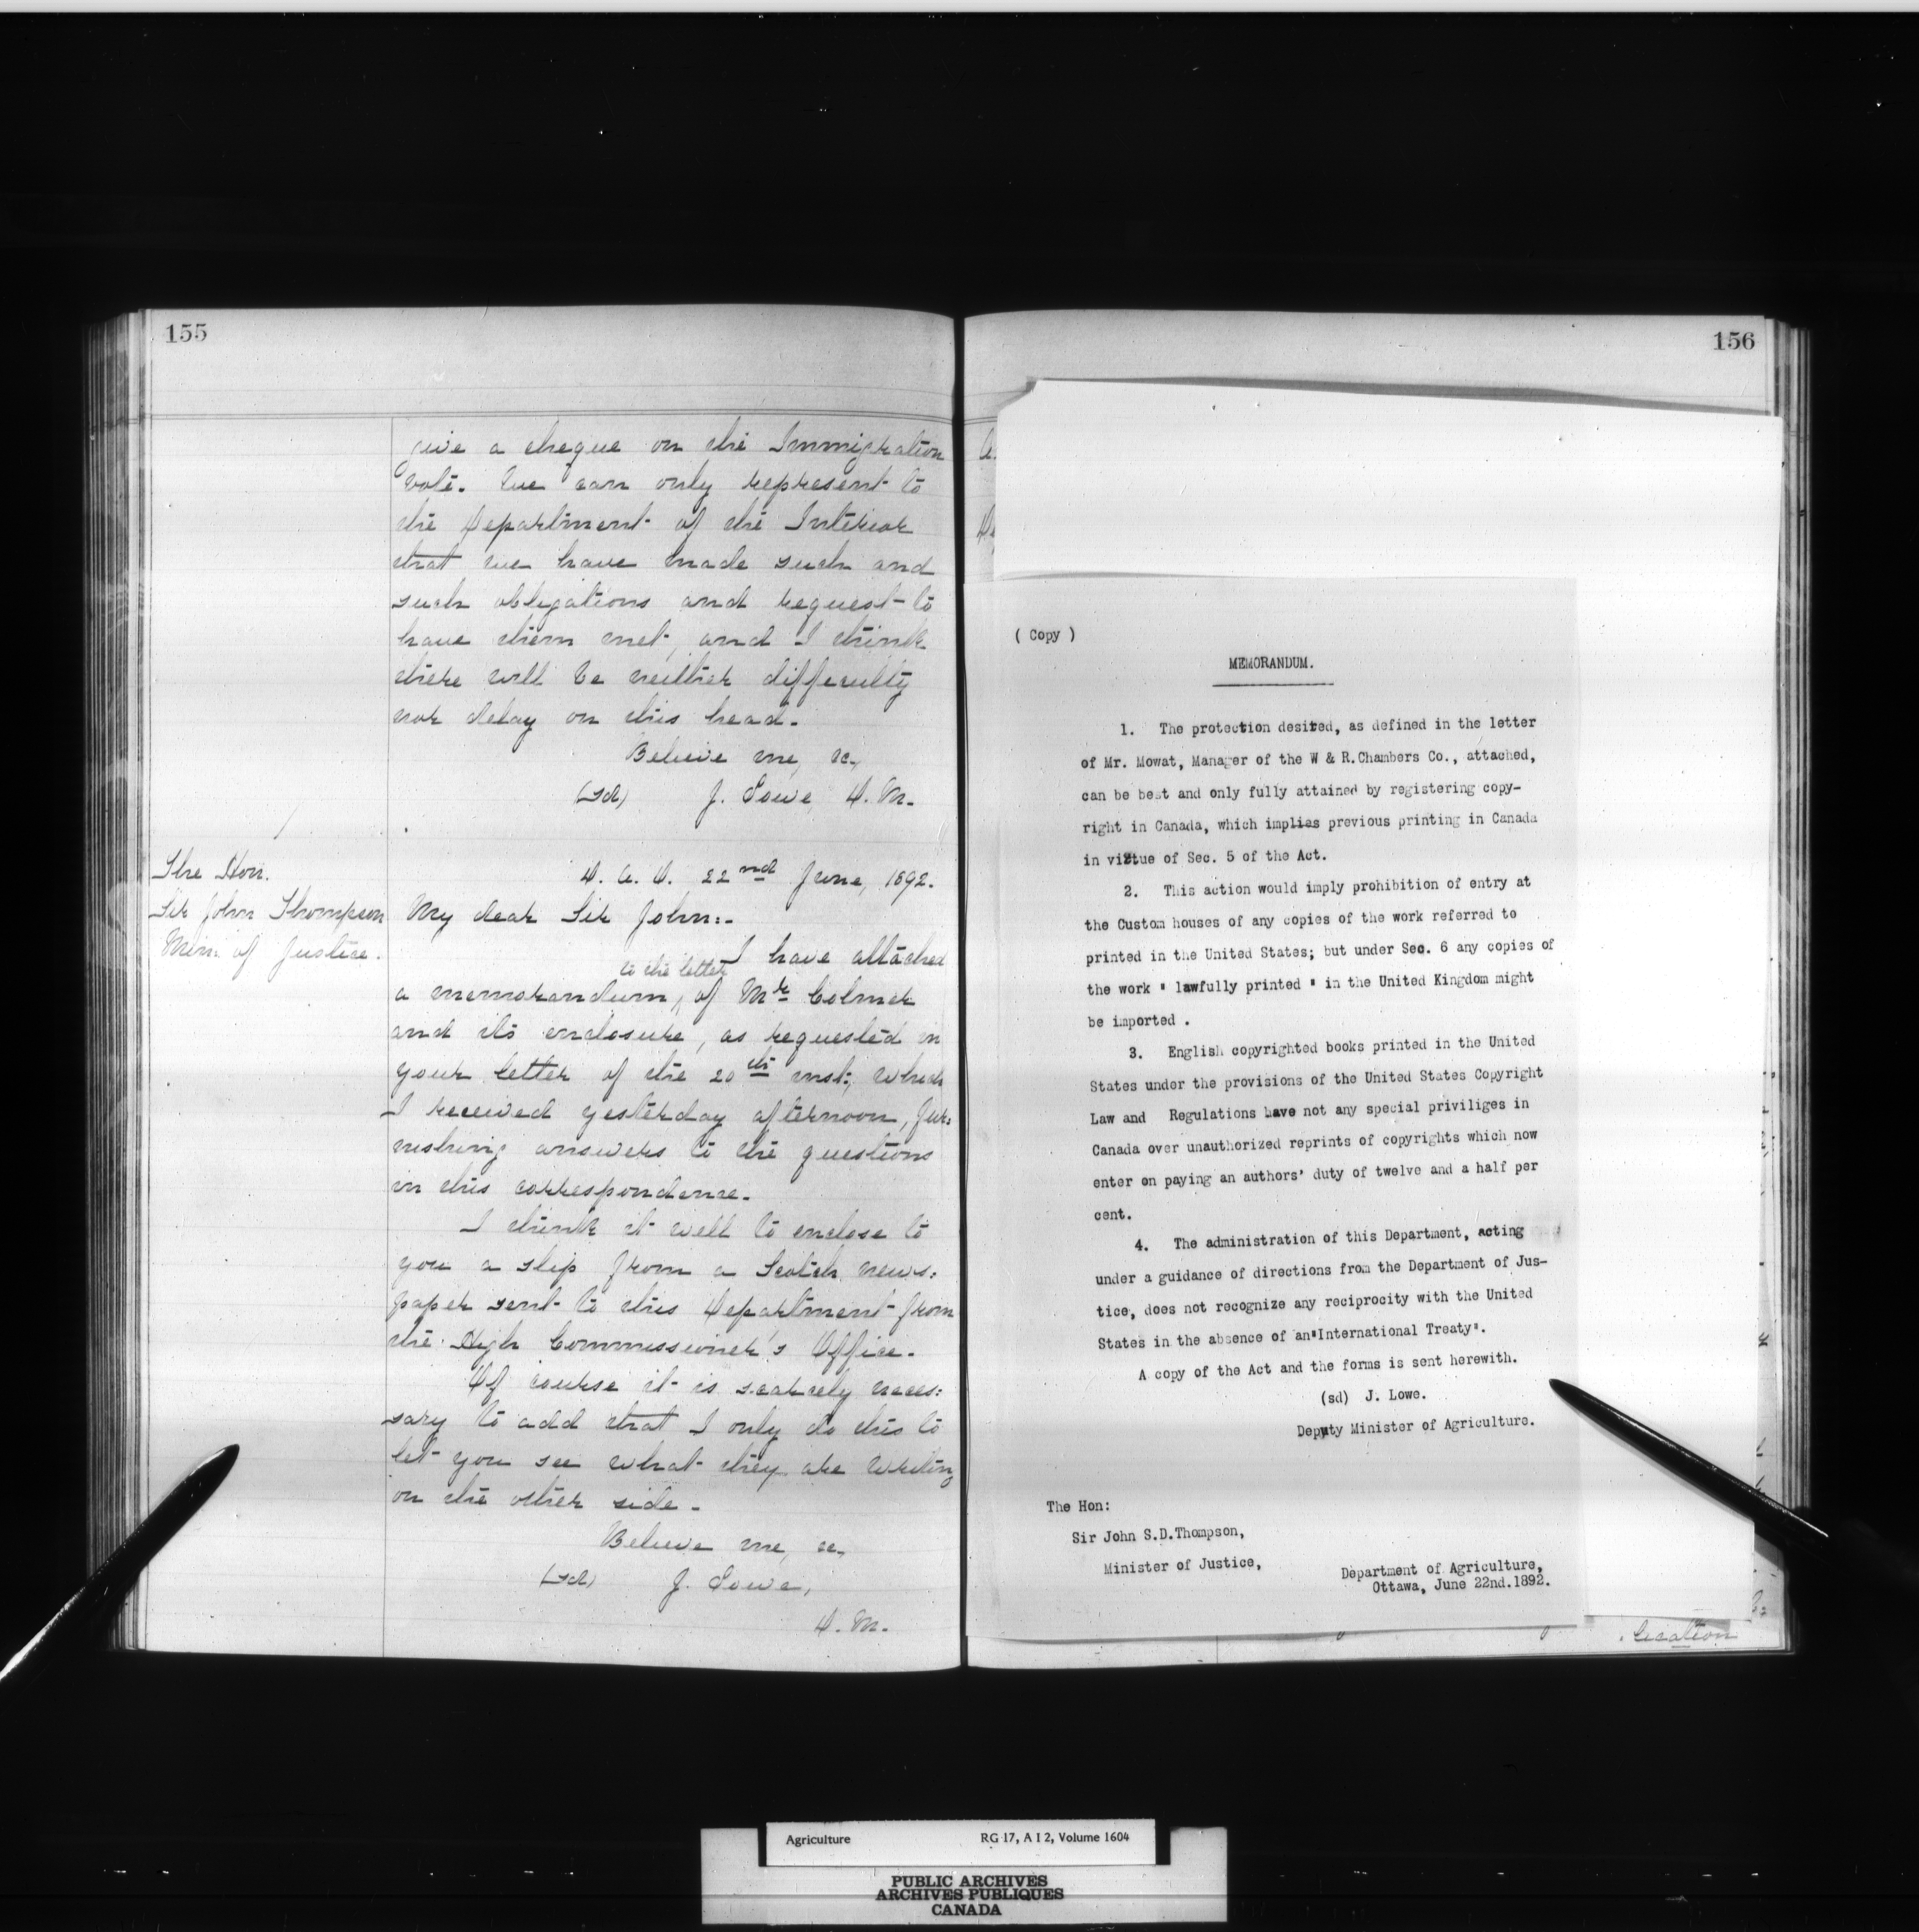 155
give a cheque on the Immigration
vote. We can only represent to
the Department of the Interior
that we have made such and
such obligations and request to
have them met, and I think
there will be neither difficulty
nor delay on this head.
Believe me, &c,
(sd) J. Lowe, D. M.
The Hon.
Sir John Thompson
Min. of Justice.
D. A. O. 22nd June, 1892.
My dear Sir John:-
I have attached
to the letter
a memorandum, of Mr Colmer
and its enclosure, as requested in
your letter of the 20th inst; which
I received yesterday afternoon, fur:
nishing answers to the questions
in this correspondence.
I think it well to enclose to
you a slip from a Scotch news:
paper sent to this Department from
the High Commissioner's Office.
Of course it is scarcely neces:
sary to add that I only do this to
let you see what they are writing
on the other side.
Believe me, &c,
(sd) J. Lowe,
D. M.
156
( Copy )
MEMORANDUM.
1. The protection desired, as defined in the letter
of Mr. Mowat, Manager of the W & R.Chambers Co., attached,
can be best and only fully attained by registering copy-
right in Canada, which implies previous printing in Canada
in virtue of Sec. 5 of the Act.
2. This action would imply prohibition of entry at
the Custom houses of any copies of the work referred to
printed in the United States; but under Sec. 6 any copies of
the work " lawfully printed " in the United Kingdom might
be imported .
3. English copyrighted books printed in the United
States under the provisions of the United States Copyright
Law and Regulations have not any special priviliges in
Canada over unauthorized reprints of copyrights which now
enter on paying an authors' duty of twelve and a half per
cent.
4. The administration of this Department, acting
under a guidance of directions from the Department of Jus-
tice, does not recognize any reciprocity with the United
States in the absence of an"International Treaty".
A copy of the Act and the forms is sent herewith.
(sd) J. Lowe.
Deputy Minister of Agriculture.
The Hon:
Sir John S.D.Thompson,
Minister of Justice,
Department of Agriculture,
Ottawa, June 22nd.1892.
Agriculture RG 17, A I 2, Volume 1604
PUBLIC ARCHIVES
ARCHIVES PUBLIQUES
CANADA